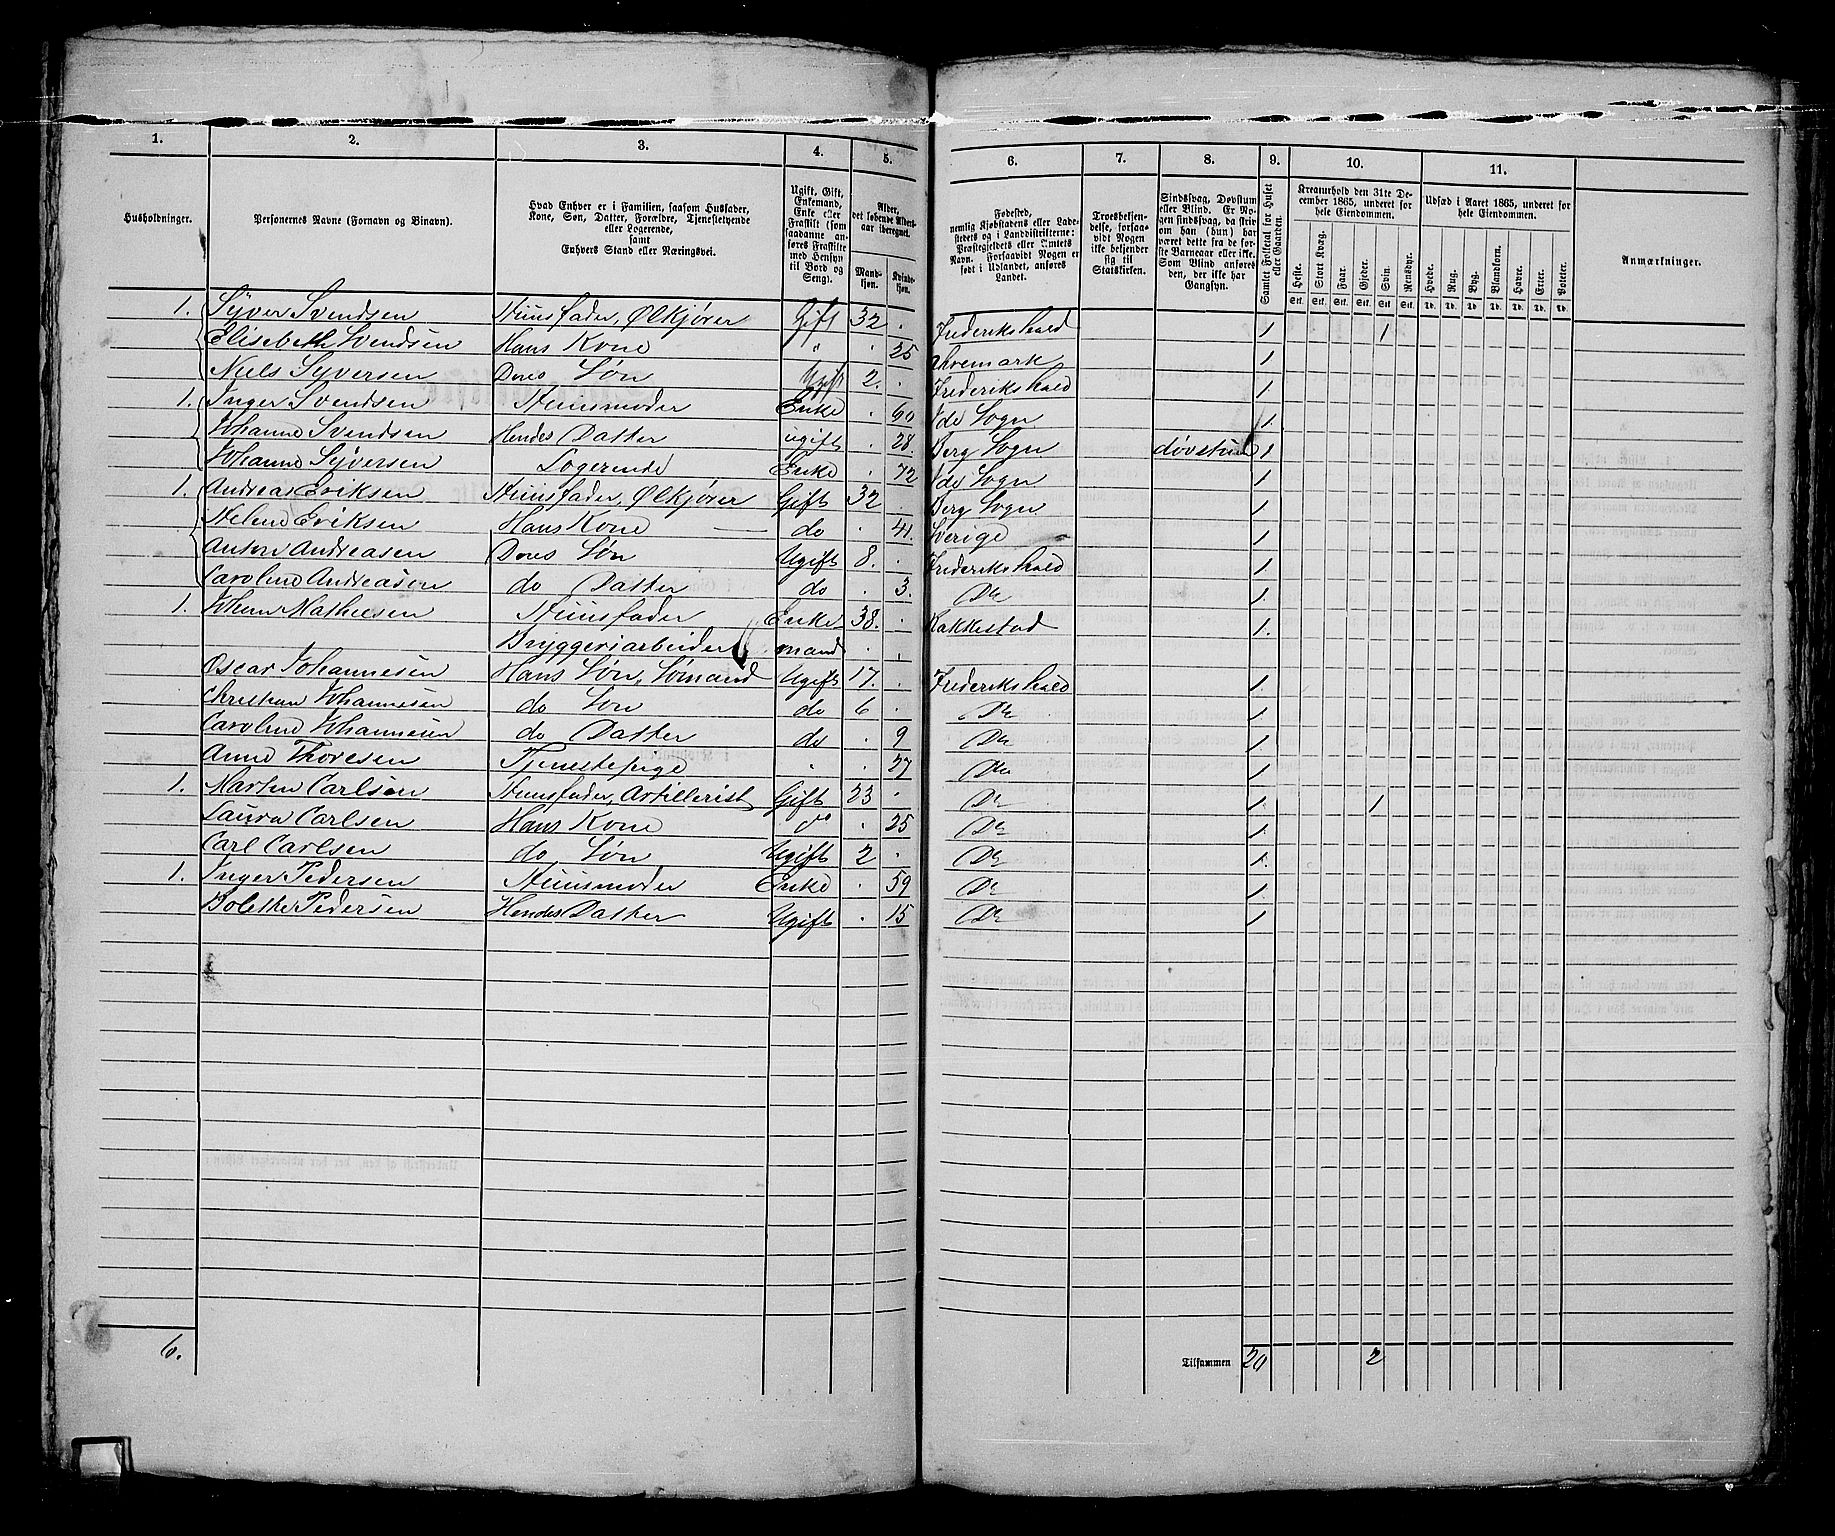 1. 2. 3. 4. 5. 6. 7. 8. 9. 10. 11.
Husholdninger.
Personernes Navne (Fornavn og Binavn).
Hvad Enhver er i Familien, saasom Husfader,
Kone, Søn, Datter, Forældre, Tjenestetyende
eller Logerende,
samt
Enhvers Stand eller Næringsvei.
Ugift, Gift,
Enkemand,
Enke eller
Fraskilt (som
saadanne an-
føres Fraskilte
med Hensyn
til Bord og
Seng).
Alder,
det løbende Alders-
aar iberegnet.
Mand-
kjøn.
Kvinde-
kjøn.
Fødested,
nemlig Kjøbstadens eller Lade-
stedets og i Landdistrikterne:
Præstegjeldets eller Amtets
Navn. Forsaavidt Nogen er
født i Udlandet, anføres
Landet.
Troesbekjen-
delse, forsaa-
vidt Nogen
ikke bekjender
sig til
Statskirken.
Sindssvag, Døvstum
eller Blind. Er No-
gen sindssvag, da skriv
om han (hun) har
været dette fra de før-
ste Barneaar eller ikke.
Som Blind anføres
den, der ikke har
Gangsyn.
Samlet Folketal for Huset
eller Gaarden.
Kreaturhold den 31te De-
cember 1865, underet for
hele Eiendommen.
Heste. Stort Kvæg. Faar. Gjeder. Svin. Rensdyr.
Stk. Stk. Stk. Stk. Stk. Stk.
Udsæd i Aaret 1865, underet for
hele Eiendommen.
Hvede. Rug. Byg. Blandkorn. Havre. Erter. Poteter.
Td. Td. Td. Td. Td. Td. Td.
Anmærkninger.
1. Syver Svendsen Huusfader, Ølkjører Gift 32 . Frederikshald 1. 1
Elisebeth Svendsen Hans Kone " . 25 Aremark 1
Niels Syversen Deres Søn Ugift 2. . Frederikshald 1
1. Inger Svendsen Huusmoder Enke . 60 Ide Sogn 1.
Johanne Svendsen Hendes Datter ugift . 28. Berg Sogn døvstum 1
Johanne Syversen Logerende Enke . 72 Ide Sogn 1
1. Andreas Eriksen Huusfader, Ølkjører Gift 32 . Berg Sogn 1
Helene Eriksen Hans Kone do . 41. Sverige 1
Anton Andreasen Deres Søn Ugift 8. . Frederikshald 1
Caroline Andreasen do Datter do . 3. Do 1.
1. Johan Mathiesen Huusfader Enke 38. . Rakkestad 1.
Bryggeriarbeider mand
Oscar Johannesen Hans Søn, Sømand Ugift 17. . Frederikshald 1.
Christian Johannesen do Søn do 6 . Do 1
Caroline Johannesen do Datter do . 9 Do 1
Anne Thoresen Tjenestepige " . 27 Do 1.
1. Morten Carlsen Huusfader, Artillerist Gift 23 . Do 1. 1
Laura Carlsen Hans Kone do . 25 Do 1.
Carl Carlsen do Søn Ugift 2 . Do 1.
1. Inger Pedersen Huusmoder Enke . 59 Do 1.
Bolethe Pedersen Hendes Datter Ugift . 15 Do 1.
6. Tilsammen 20 2